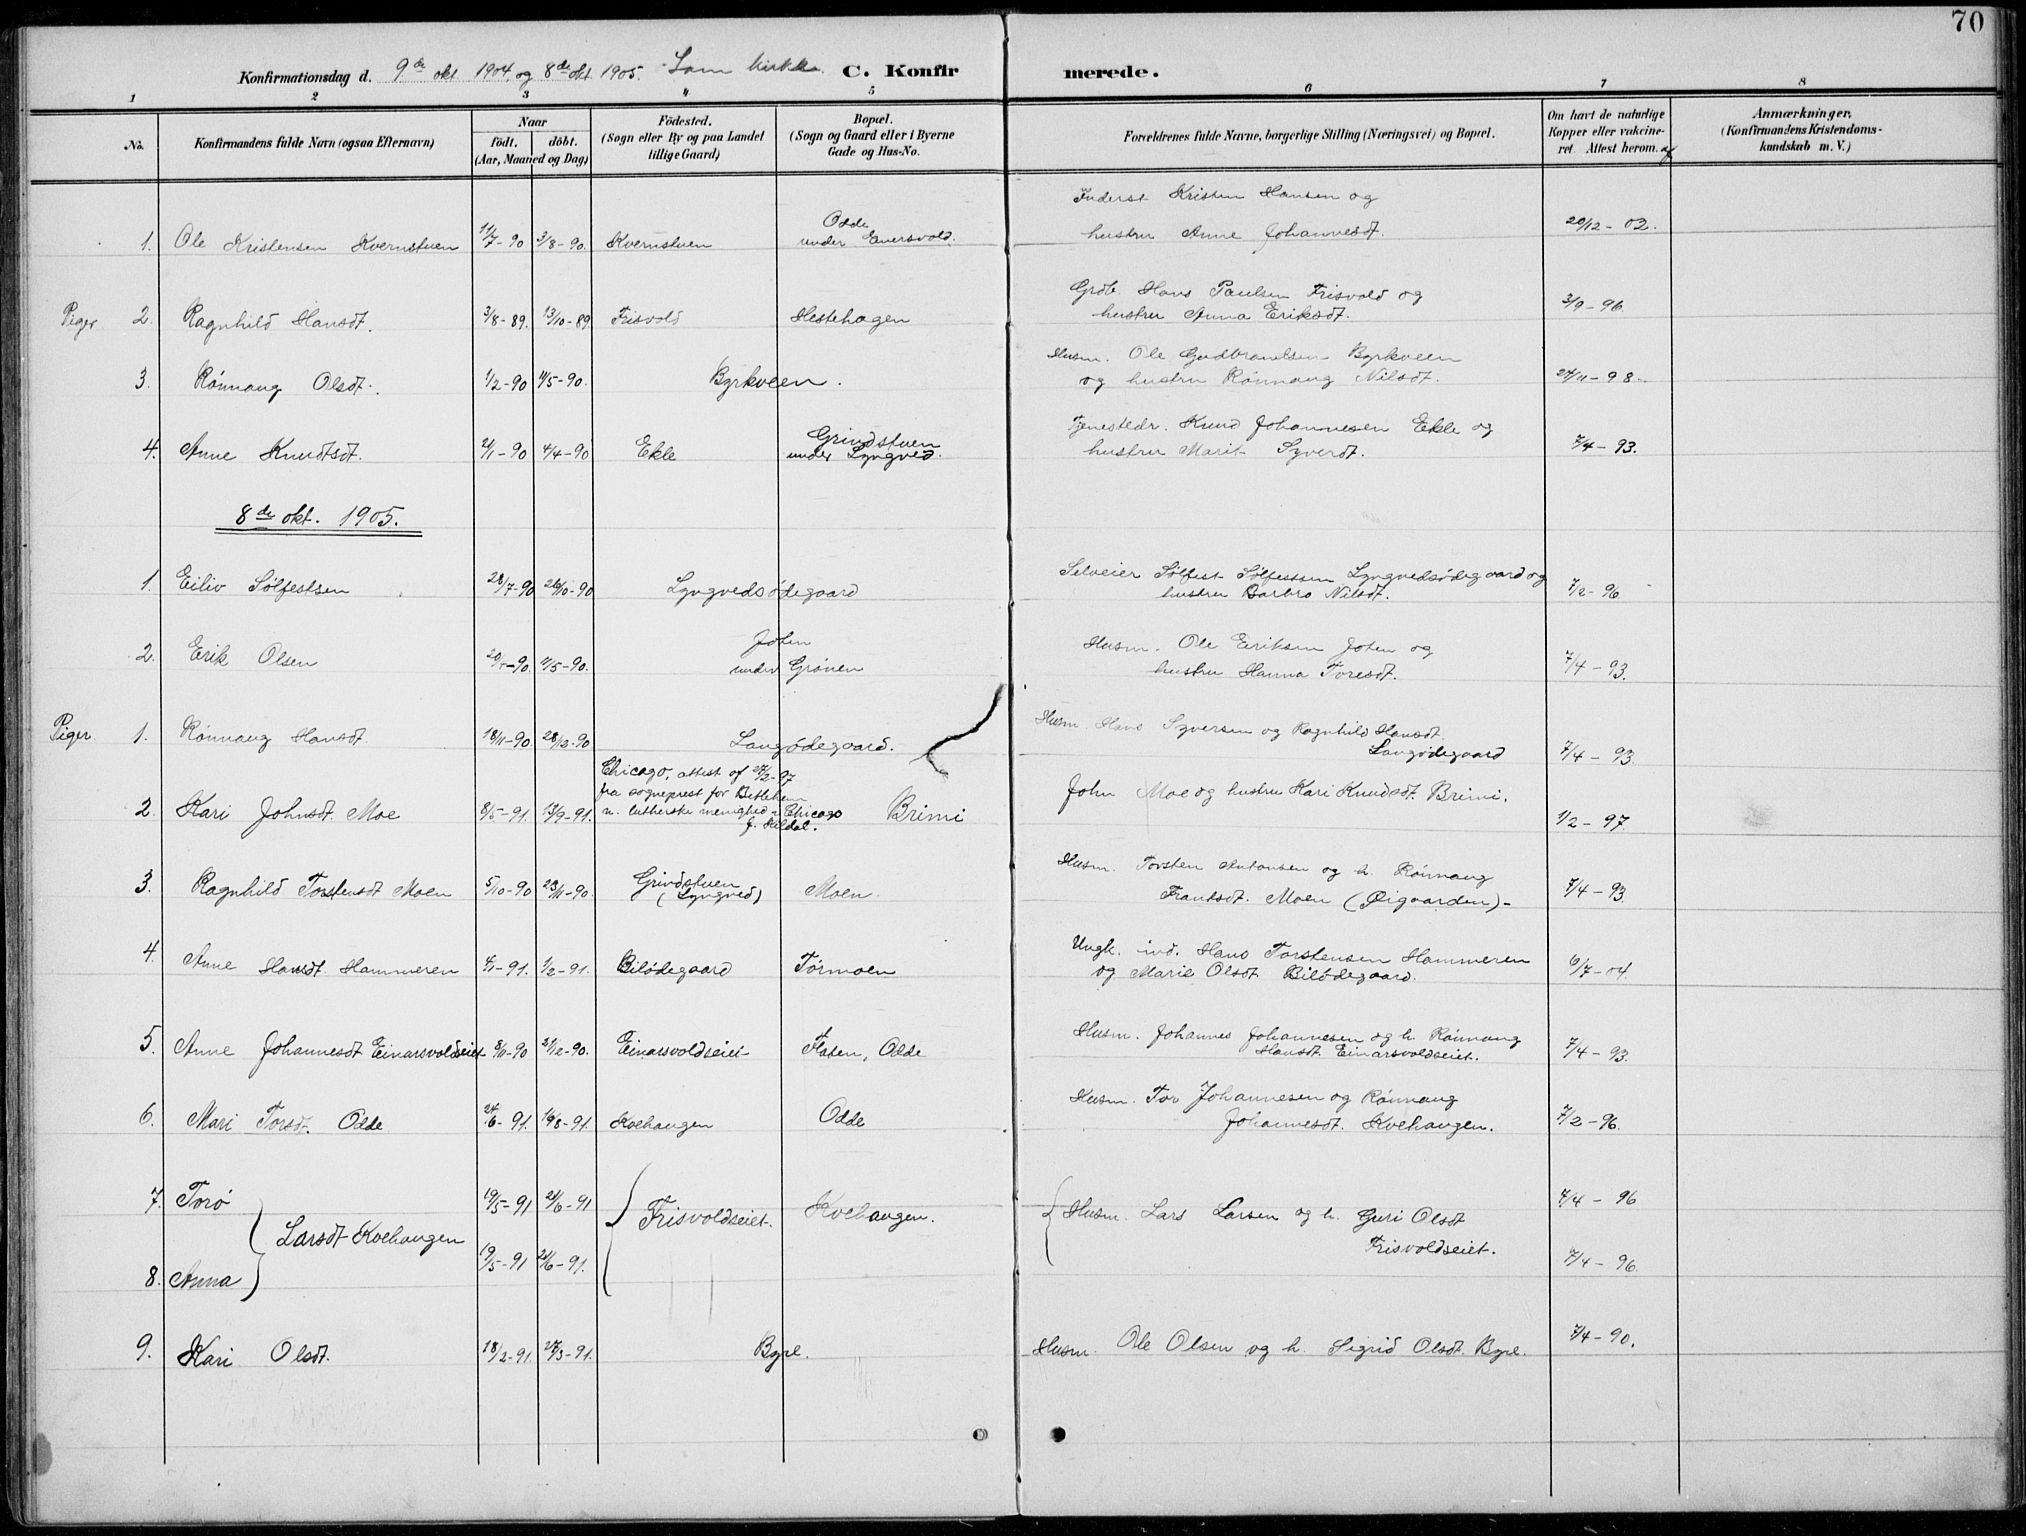 70
Konfirmationsdag d. 9de okt 1904, og 8de okt 1905. Lom kirke. C. Konfirmerede.
1 2 3 4 5 6 7 8
No.
Konfirmandens fulde Navn (ogsaa Efternavn)
Naar
født. døbt.
(Aar, Maaned og Dag)
Fødested.
(Sogn eller By og paa Landet
tillige Gaard)
Bopæl.
(Sogn og Gaard eller i Byerne
Gade og Hus-No.
Forældrenes fulde Navne, borgerlige Stilling (Næringsvei) og Bopæl.
Om havt de naturlige
Kopper eller vakcine-
ret. Attest herom. af
Anmærkninger,
(Konfirmandens Kristendoms-
kundskab m. V.)
1. Ole Kristensen Kvernstuen 11/7-90 3/8-90. Kvernstuen Odde under Einersvold. Inderst Kristen Hansen og hustru Anne Johannesdt. 20/12-02.
Piger 2. Ragnhild Hansdt. 3/8-89. 13/10-89 Frisvold Hestehagen Grdb. Hans Paulsen Frisvold og hustru Anna Eriksdt. 3/9-96
3. Rønnaug Olsdt. 1/2-90 11/5-90. Byrkveen. Husm. Ole Gudbrandsen Byrkveen og hustru Rønnaug Nilsdt. 24/11-98.
4. Anne Knudtsdt. 2/1-90 4/4-90 Ekle Grindstuen under Lyngved. Tjenestedr. Knud Johannesen Ekle og hustru Marit Syverdt. 7/4-93.
8de okt. 1905.
1. Eiliv Sølfestsen 28/7-90 26/10-90 Lyngvedsødegaard Selveier Sølfest Sølfestsen Lyngvedsødegaard og hustru Barbro Nilsdt. 7/2-96
2. Erik Olsen 11/5-90. Joten under Grønen Husm. Ole Eriksen Joten og hustru Hanna Toresdt. 7/4-93.
Piger. 1. Rønnaug Hansdt. 18/11-90 28/12-90 Langødegaard. Husm Hans Syversen og Ragnhild Hansdt. Langødegaard 7/4-93
2. Kari Johnsdt. Moe 8/5-91. 13/9-91. Chicago, attest af 27/2-97
fra sogneprest for Betlehem
n. lutherske menighed i Chicago
J. Kildal. Brimi John Moe og hustru Kari Knudsdt. Brimi. 1/2-97
3. Ragnhild Torstensdt Moen 5/10-90 23/11-90. Grindstuen (Lyngved) Moen. Husm. Torsten Antonsen og h. Rønnaug Frantsdt. Moen (Øigaarden)- 7/4-93.
4. Anne Hansdt. Hammeren 4/1-91. 1/2-91. Bilødegaard Tørmoen Ungk. ind. Hans Torstensen Hammeren og Marie Olsdt. Bilødegaard. 6/7-04.
5. Anne Johannesdt Einarsvoldseiet 8/11-90 21/12-90. Einarsvoldseiet Flaten, Odde Husm. Johannes Johannesen og h. Rønnaug Hansdt. Einarsvoldseiet. 7/4-93.
6. Mari Torsdt. Odde 24/6-91. 16/8-91. Kvehaugen Odde Husm. Tor Johannesen og Rønnaug Johannesdt. Kvehaugen. 7/2-96.
7. Torø 19/5-91 21/6-91 Frisvoldseiet. Kvehaugen. Husm. Lars Larsen og h. Guri Olsdt Frisvoldseiet. 7/4-96
Larsdt Kvehaugen
8. Anna 19/5-91 21/6-91. 7/4-96.
9. Kari Olsdt. 18/2-91. 27/3-91. Byre. Husm. Ole Olsen og h. Sigrid Olsdt. Byre. 7/4-90.